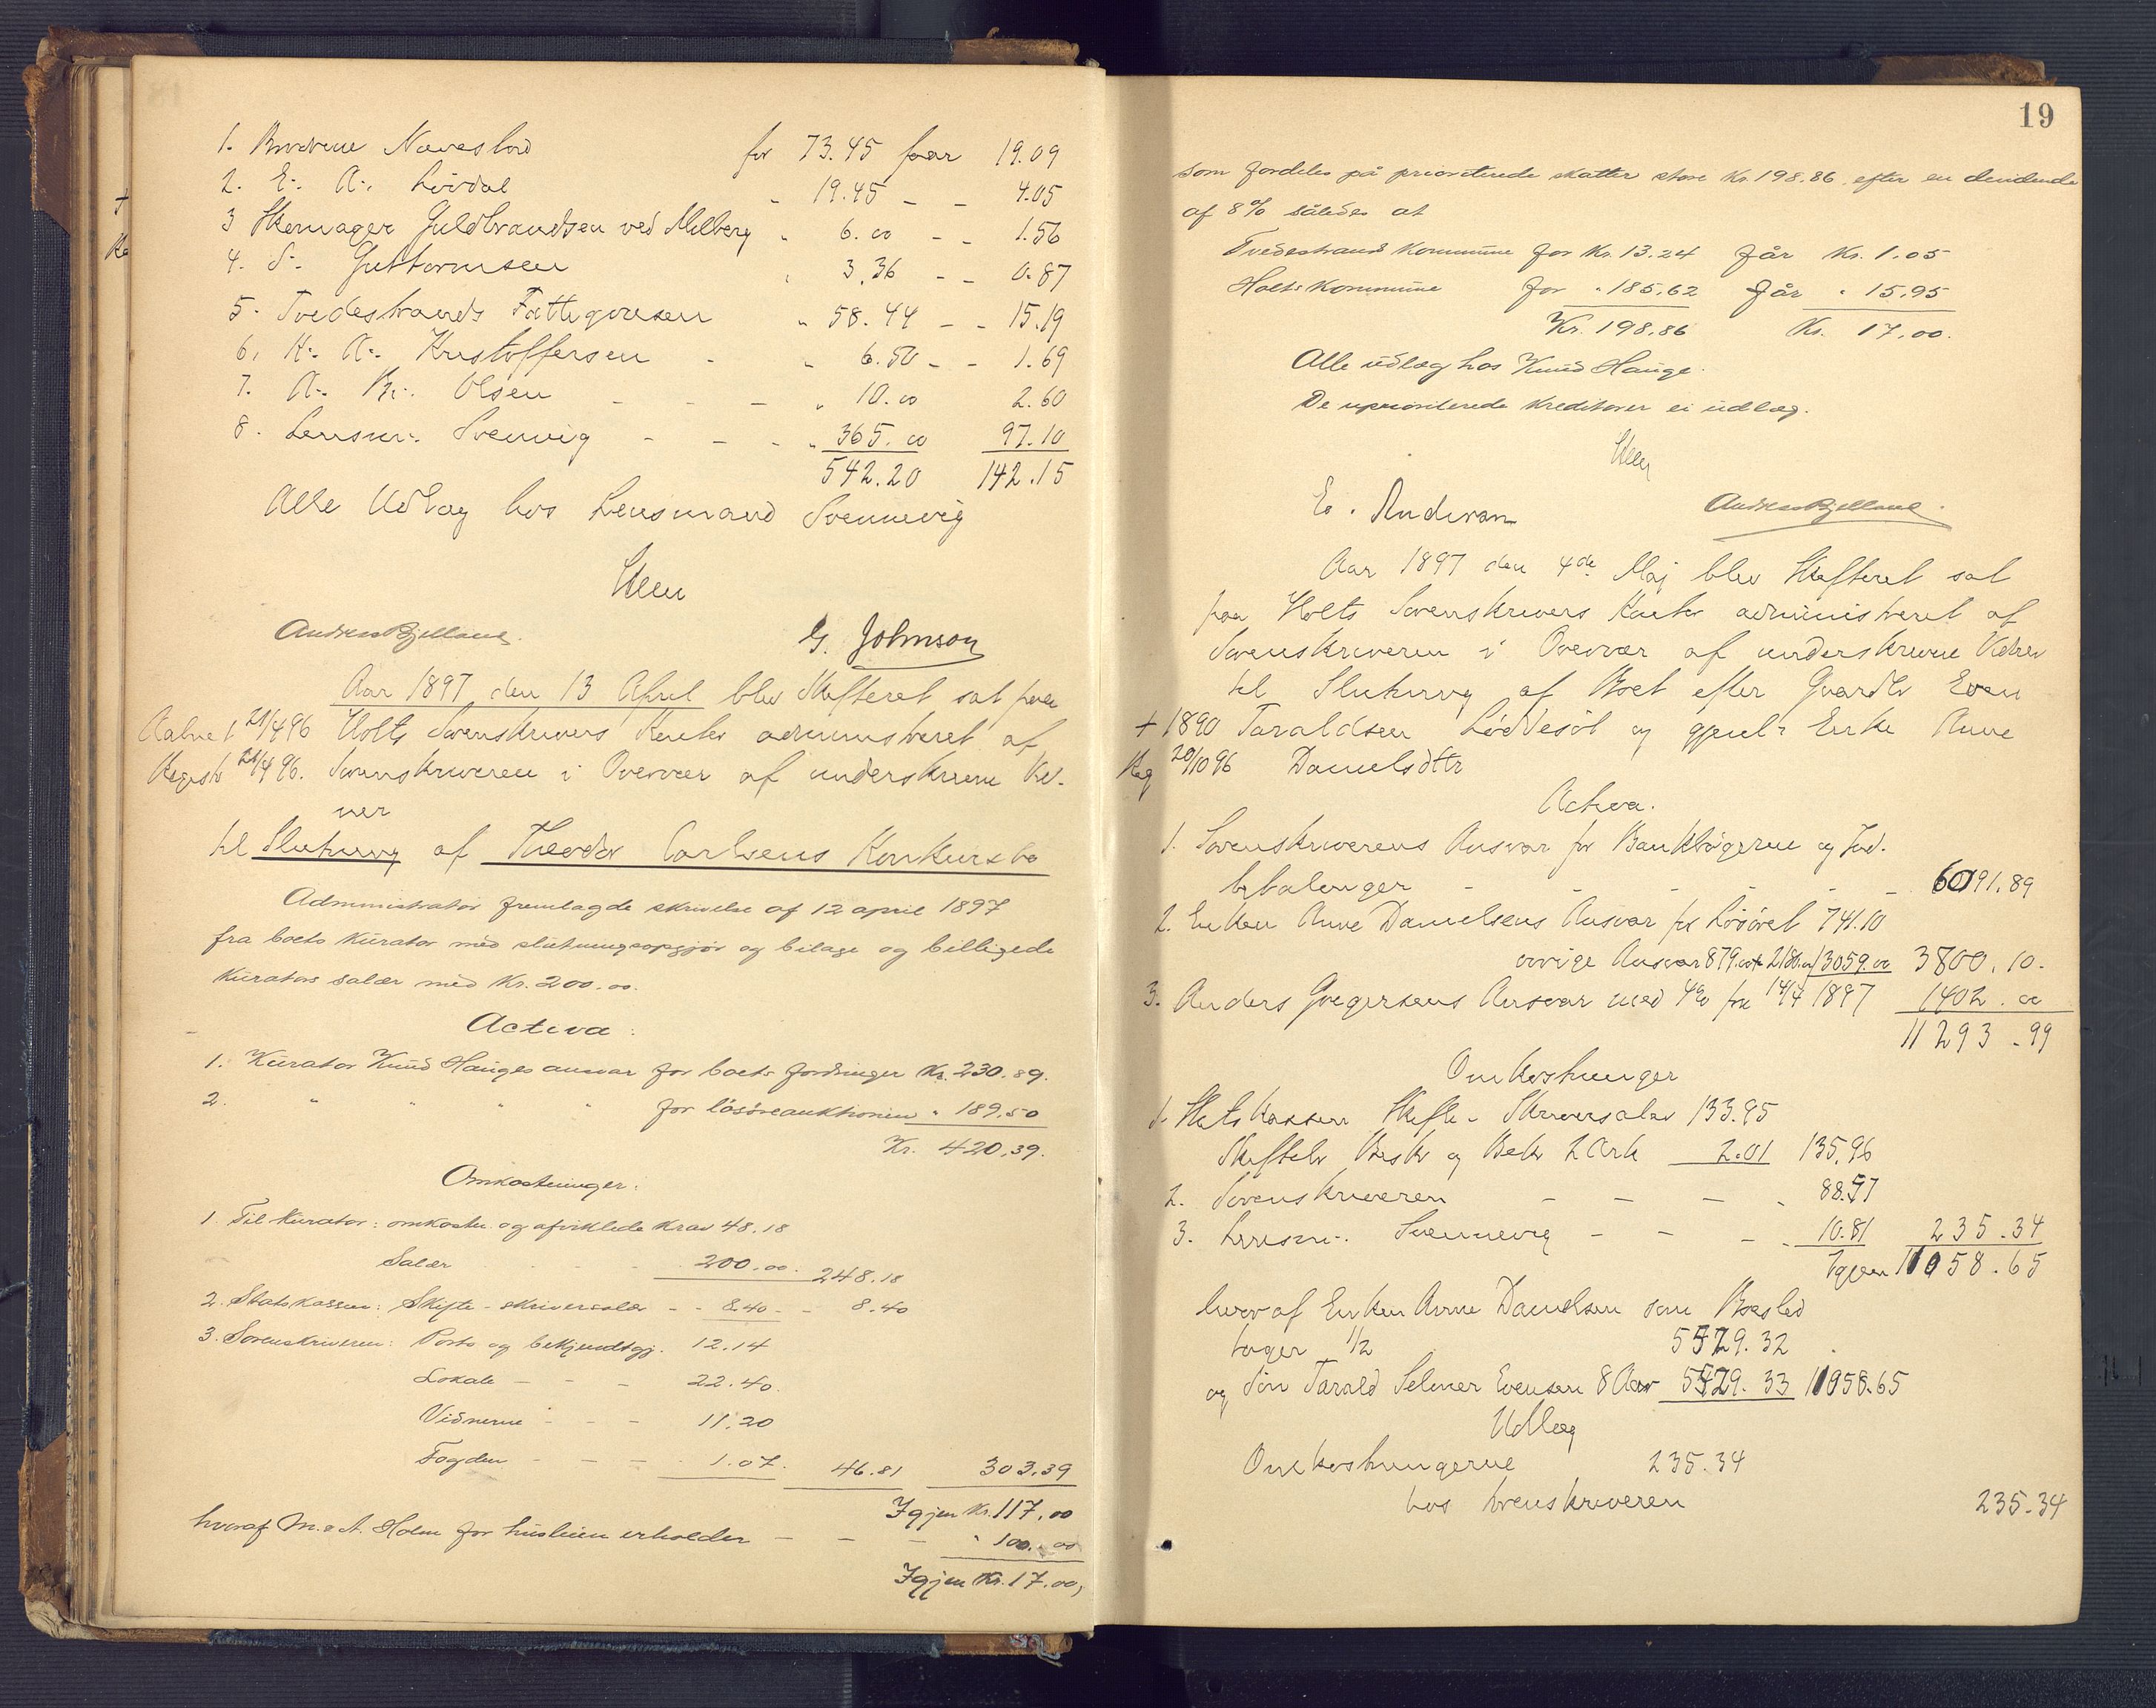 1. Brødrene Næveslod for 73.45 faar 19.09
2. E. A. Løvdal " 19.45 - - 4.05
3 Skomager Guldbrandsen ved Milberg " 6.00 - - 1.56
4. S. Guttormsen " 3.36 - - 0.87
5. Tvedestrands Fattigvæsen " 58.44 - - 15.19
6. K. A. Kristoffersen - " 6.50 - - 1.69
7. A. Br. Olsen - - - " 10.00 2.60
8. Lensm. Svennvig - - - " 365.00 97.10
542.20 142.15
Alle Udlæg hos Lensmand Svennevig
Ullen
Andreas Bjelland. G. Johnson
Aar 1897 den 13 April blev Skifteret sat paa
Aabnet 21/4 96 Holts Sorenskrivers Kontor administreret af
Registr 21/4 96. Sorenskriveren i Overvær af underskrevne Vid-
ner
til Slutning af Theodor Carlsens Konkursbo
Administrator fremlagde skrivelse af 12 april 1897
fra boets kurator med slutningsopgjør og bilage og billigede
kurators salær med Kr. 200.00.
Activa:
1. Kurator Knud Hauges ansvar for boets fordringer Kr. 230.89.
2. " " " " for løsøreauktionen " 189.50
Kr. 420.39.
Omkostninger:
1. Til kurator: omkostn. og afviklede krav 48.18
Salær - - - 200.00. 248.18
2. Statskassen: Skifte-skriversalær - - 8.40 - - 8.40
3. Sorenskriveren: Porto og bekjendtgj. 12.14
Lokale - - - 22.40.
Vidnerne - - - 11.20
Fogden - - - 1.07. 46.81 303.39
Igjen Kr. 117.00
hvoraf M. & A. Holm for husleien erholder - - - " 100.00
Igjen Kr. 17.00,
19
som fordeles på prioriterede skatter store Kr. 198.86, efter en dividende
af 8% således at
Tvedestrand kommune for Kr. 13.24 får Kr. 1.05
Holts kommune for " 185.62 får " 15.95
Kr. 198.86 Kr. 17.00.
Alle udlæg hos Knud Hauge.
De uprioriterede kreditorer ei udlæg.
Ullen
E. Andersen Andreas Bjelland.
Aar 1897 den 4de Maj blev Skifteret sat
paa Holts Sorenskrivers Kontor administreret af
Sorenskriveren i Overvær af underskrevne Vidner
til Slutning af Boet efter Gaardbr Even
+ 1890 Taraldsen Løddesøl og gjenl. Enke Anne
Reg 20/10 96 Danielsdttr
Activa.
1. Sorenskriverens Ansvar for Bankbøgerne og Ind-
betalinger - - - - - - 6091.89
2. Enken Anne Danielsens Ansvar for Løsøret 741.10
øvrige Ansvar 879.00 + 2180.00 / 3059.00 3800.10.
3. Anders Gregersens Ansvar med 4% fra 14/4 1897 1402.00
11293.99
Omkostninger
1. Statskassen Skifte-Skriversalær 133.95
Skiftelv Beskr og Bekr 2 Ark 2.01 135.96
2. Sorenskriveren - - - - 88.57
3. Lensm. Svennevig - - - - 10.81 235.34
Igjen 11058.65
hvoraf Enken Anne Danielsen som Boeslod
tager 1/2 5529.32
og Søn Tarald Selmer Evensen 8 Aar 5529.33 11058.65
Udlæg
Omkostningerne 235.34
hos Sorenskriveren 235.34